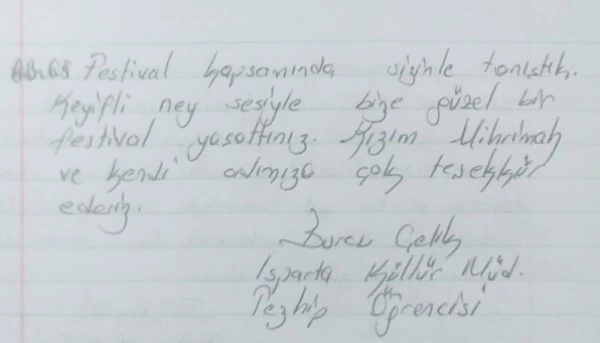 Festival kapsamında sizinle tanıştık.
Keyifli ney sesiyle bize güzel bir
festival yaşattınız. Kızım Mihrimah
ve kendi adımıza çok teşekkür
ederiz.
Burcu Çelik
Isparta Kültür Müd.
Tezhip Öğrencisi